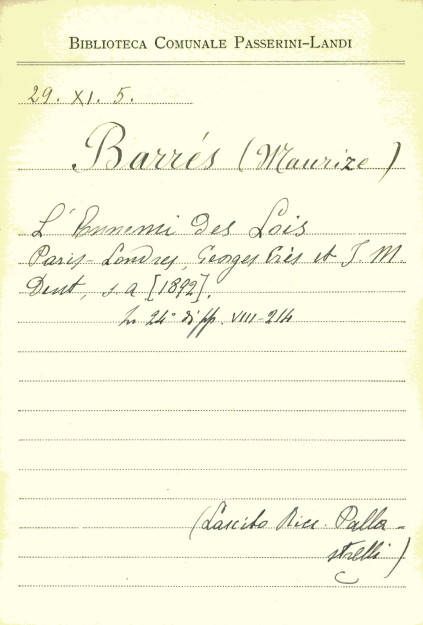 BIBLIOTECA COMUNALE PASSERINI-LANDI
29. XI. 5.
Barrés (Maurize)
L'Ennemi des Lois
Paris-Londres, Georges Crès et J M
Dent, s a [1892].
In 24° di pp. VIII-214
(Lascito Ricc. Palla-
strelli)